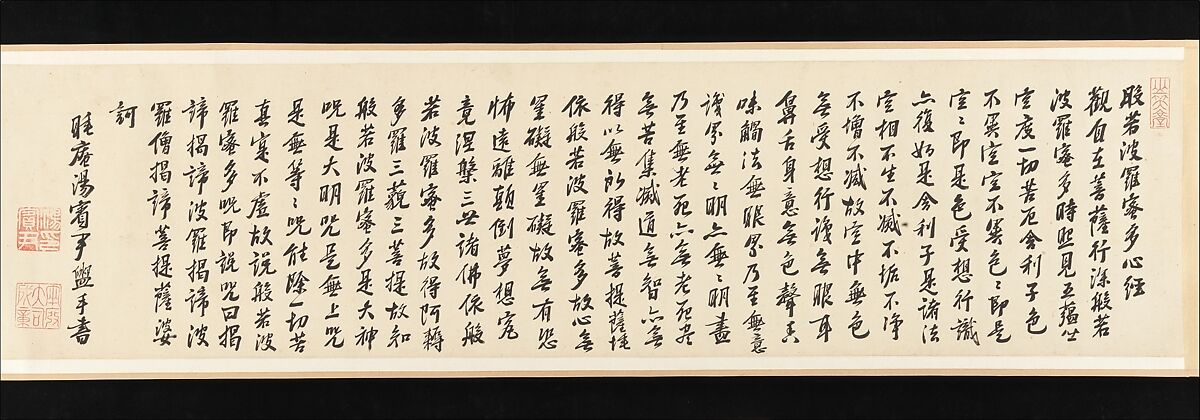 般若波羅蜜多心經
觀自在菩薩行深般若
波羅蜜多時照見五蘊皆
空度一切苦厄舍利子色
不異空空不異色〻即是
空〻即是色受想行識
亦復如是舍利子是諸法
空相不生不滅不垢不淨
不增不減故空中無色
無受想行識無眼耳
鼻舌身意無色聲香
味觸法無眼界乃至無意
識界無〻明亦無〻明盡
乃至無老死亦無老死盡
無苦集滅道無智亦無
得以無所得故菩提薩埵
依般若波羅蜜多故心無
罣礙無罣礙故無有恐
怖遠離顛倒夢想究
竟涅槃三世諸佛依般
若波羅蜜多故得阿耨
多羅三藐三菩提故知
般若波羅蜜多是大神
呪是大明呪是無上呪
是無等〻呪能除一切苦
真實不虛故說般若波
羅蜜多呪即說呪曰揭
諦揭諦波羅揭諦波
羅僧揭諦菩提薩婆
訶
睡庵湯賓尹盥手書
湯印賓尹